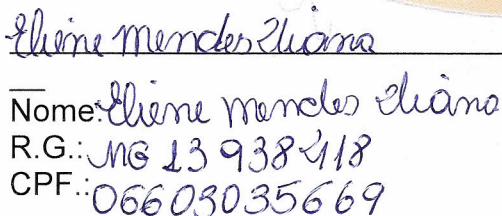 Eliene Mendes Viana
Nome: Eliene Mendes Viana
R.G.: MG 13 938 418
CPF.: 06603035669